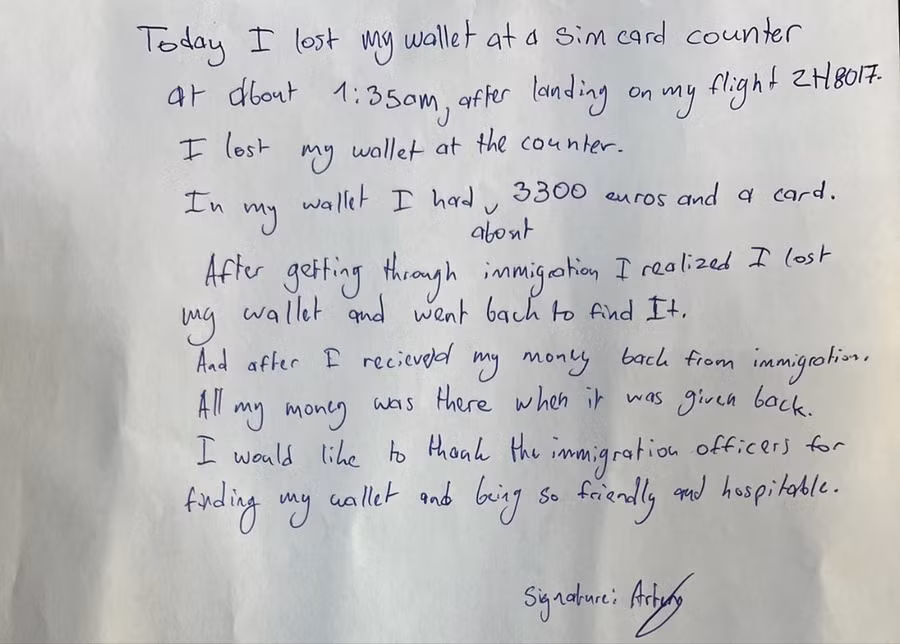 Today I lost my wallet at a sim card counter
at about 1:35am, after landing on my flight ZH8017.
I lost my wallet at the counter.
In my wallet I had about 3300 euros and a card.
After getting through immigration I realized I lost
my wallet and went back to find It.
And after I recieveld my money back from immigration.
All my money was there when it was given back.
I would like to thank the immigration officers for
finding my wallet and being so friendly and hospitable.
Signature: